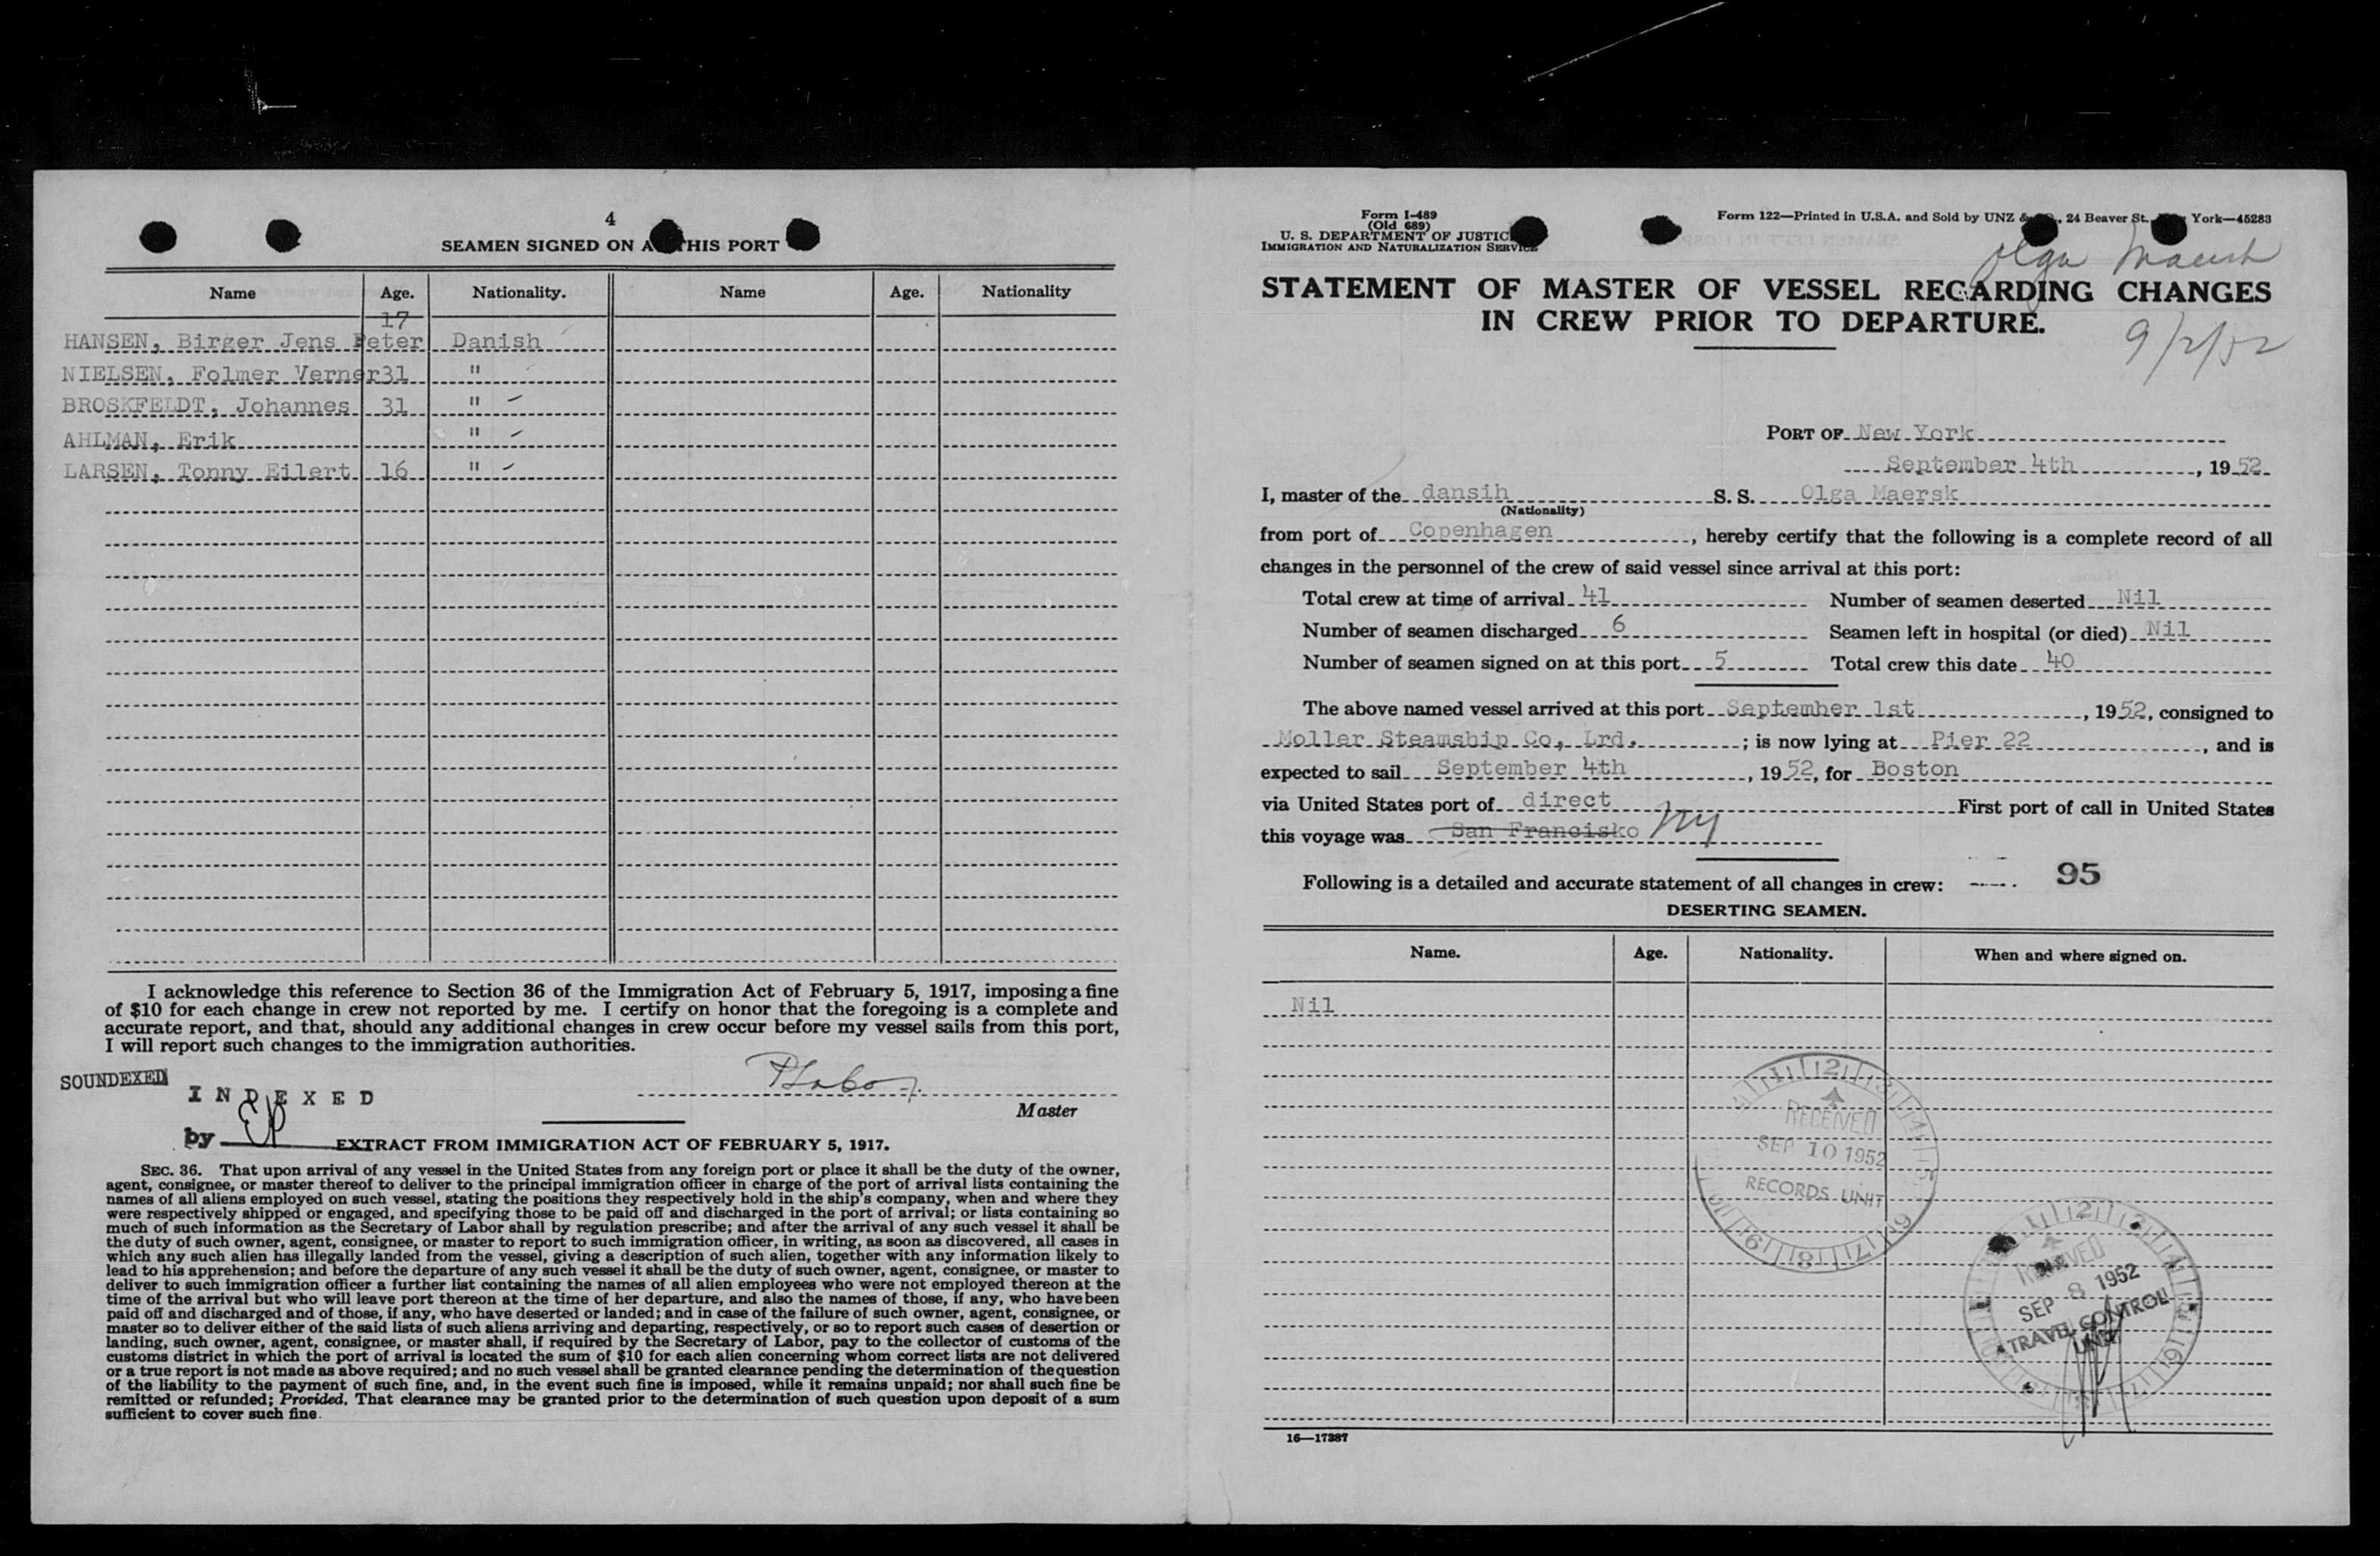 4
SEAMEN SIGNED ON A THIS PORT
Name Age. Nationality. Name Age. Nationality
17
HANSEN, Birger Jens Peter Danish
NIELSEN, Folmer Verner 31 "
BROSKFELDT, Johannes 31 "
AHLMAN, Erik "
LARSEN, Tonny Eilert 16 "
I acknowledge this reference to Section 36 of the Immigration Act of February 5, 1917, imposing a fine
of $10 for each change in crew not reported by me. I certify on honor that the foregoing is a complete and
accurate report, and that, should any additional changes in crew occur before my vessel sails from this port,
I will report such changes to the immigration authorities.
SOUNDEXED
INDEXED
Master
by
EXTRACT FROM IMMIGRATION ACT OF FEBRUARY 5, 1917.
SEC. 36. That upon arrival of any vessel in the United States from any foreign port or place it shall be the duty of the owner,
agent, consignee, or master thereof to deliver to the principal immigration officer in charge of the port of arrival lists containing the
names of all aliens employed on such vessel, stating the positions they respectively hold in the ship's company, when and where they
were respectively shipped or engaged, and specifying those to be paid off and discharged in the port of arrival; or lists containing so
much of such information as the Secretary of Labor shall by regulation prescribe; and after the arrival of any such vessel it shall be
the duty of such owner, agent, consignee, or master to report to such immigration officer, in writing, as soon as discovered, all cases in
which any such alien has illegally landed from the vessel, giving a description of such alien, together with any information likely to
lead to his apprehension; and before the departure of any such vessel it shall be the duty of such owner, agent, consignee, or master to
deliver to such immigration officer a further list containing the names of all alien employees who were not employed thereon at the
time of the arrival but who will leave port thereon at the time of her departure, and also the names of those, if any, who have been
paid off and discharged and of those, if any, who have deserted or landed; and in case of the failure of such owner, agent, consignee, or
master so to deliver either of the said lists of such aliens arriving and departing, respectively, or so to report such cases of desertion or
landing, such owner, agent, consignee, or master shall, if required by the Secretary of Labor, pay to the collector of customs of the
customs district in which the port of arrival is located the sum of $10 for each alien concerning whom correct lists are not delivered
or a true report is not made as above required; and no such vessel shall be granted clearance pending the determination of the question
of the liability to the payment of such fine, and, in the event such fine is imposed, while it remains unpaid; nor shall such fine be
remitted or refunded; Provided, That clearance may be granted prior to the determination of such question upon deposit of a sum
sufficient to cover such fine.
Form I-489
(Old 689)
U. S. DEPARTMENT OF JUSTIC
IMMIGRATION AND NATURALIZATION SERVICE
Form 122—Printed in U.S.A. and Sold by UNZ & , 24 Beaver St. York—45283
Olga Maersk
STATEMENT OF MASTER OF VESSEL REGARDING CHANGES
IN CREW PRIOR TO DEPARTURE.
9/2/52
PORT OF New York
September 4th , 19 52
I, master of the dansih S. S. Olga Maersk
(Nationality)
from port of Copenhagen , hereby certify that the following is a complete record of all
changes in the personnel of the crew of said vessel since arrival at this port:
Total crew at time of arrival 41 Number of seamen deserted Nil
Number of seamen discharged 6 Seamen left in hospital (or died) Nil
Number of seamen signed on at this port 5 Total crew this date 40
The above named vessel arrived at this port September 1st , 19 52, consigned to
Moller Steamship Co, Lrd. ; is now lying at Pier 22 , and is
expected to sail September 4th , 19 52, for Boston
via United States port of direct First port of call in United States
this voyage was San Francisko NY
Following is a detailed and accurate statement of all changes in crew: 95
DESERTING SEAMEN.
Name. Age. Nationality. When and where signed on.
Nil
RECEIVED
SEP 10 1952
RECORDS UNIT
RECEIVED
SEP 8 1952
TRAVEL CONTROL
UNIT
16—17387